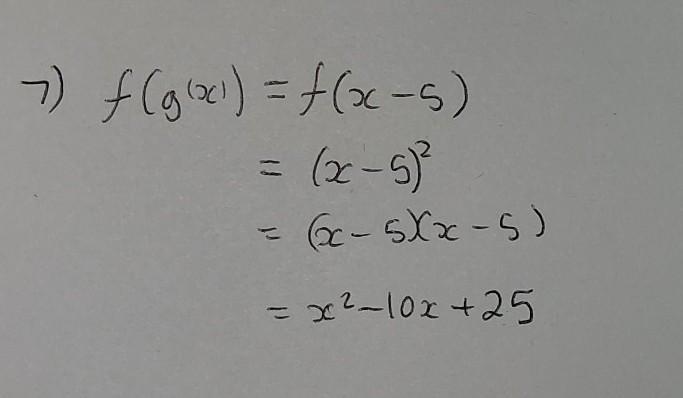 7) f(g(x)) = f(x - 5)
= (x - 5)²
= (x - 5)(x - 5)
= x² - 10x + 25